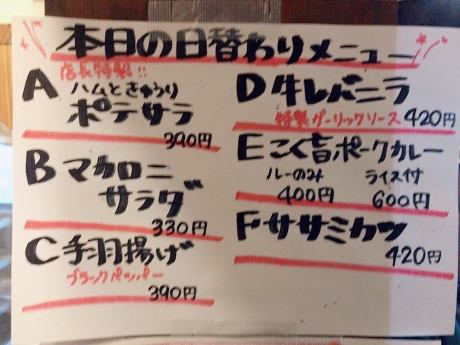 本日の日替わりメニュー
店長特製!!
A ハムときゅうり
ポテサラ
390円
B マカロニ
サラダ
330円
C 手羽揚げ
ブラックペッパー
390円
D 牛レバニラ
特製ガーリックソース 420円
E こく旨ポークカレー
ルーのみ ライス付
400円 600円
F ササミカツ
420円